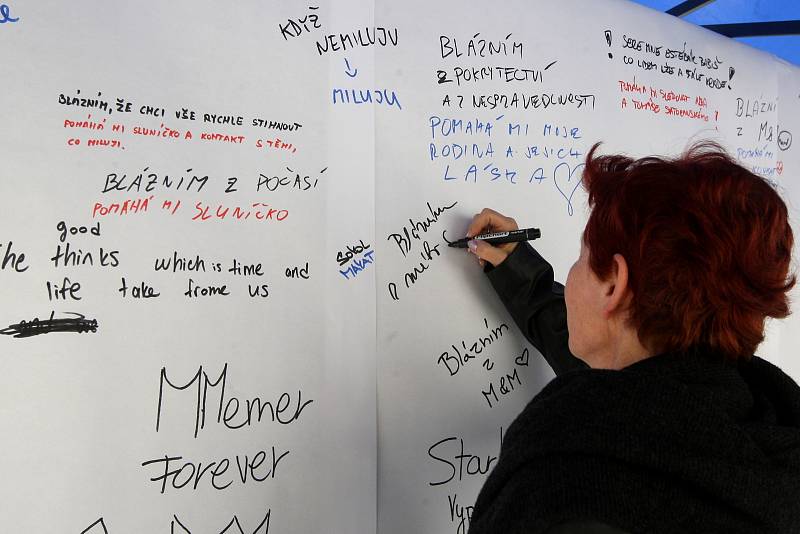 KDYŽ
NEMILUJU
MILUJU
BLÁZNÍM, ŽE CHCI VŠE RYCHLE STIHNOUT
POMÁHÁ MI SLUNÍČKO A KONTAKT S TĚMI,
CO MILUJI.
BLÁZNÍM Z POČASÍ
POMÁHÁ MI SLUNÍČKO
good
the thinks which is time and
life take frome us
MMemer
Forever
SOKOL
MAKAT
BLÁZNÍM
Z POKRYTECTVÍ
A Z NESPRAVEDLNOSTI
POMÁHÁ MI MOJE
RODINA A JEJICH
LÁSKA
! SERE MNE ESTÉBÁK BABIŠ
CO LIDEM LŽE A !
POMÁHÁ MI SLEDOVAT
A TOMÁŠE !
BLÁZNÍ
Z M&
POMÁHÁ MI
Blázním
Z
M&M